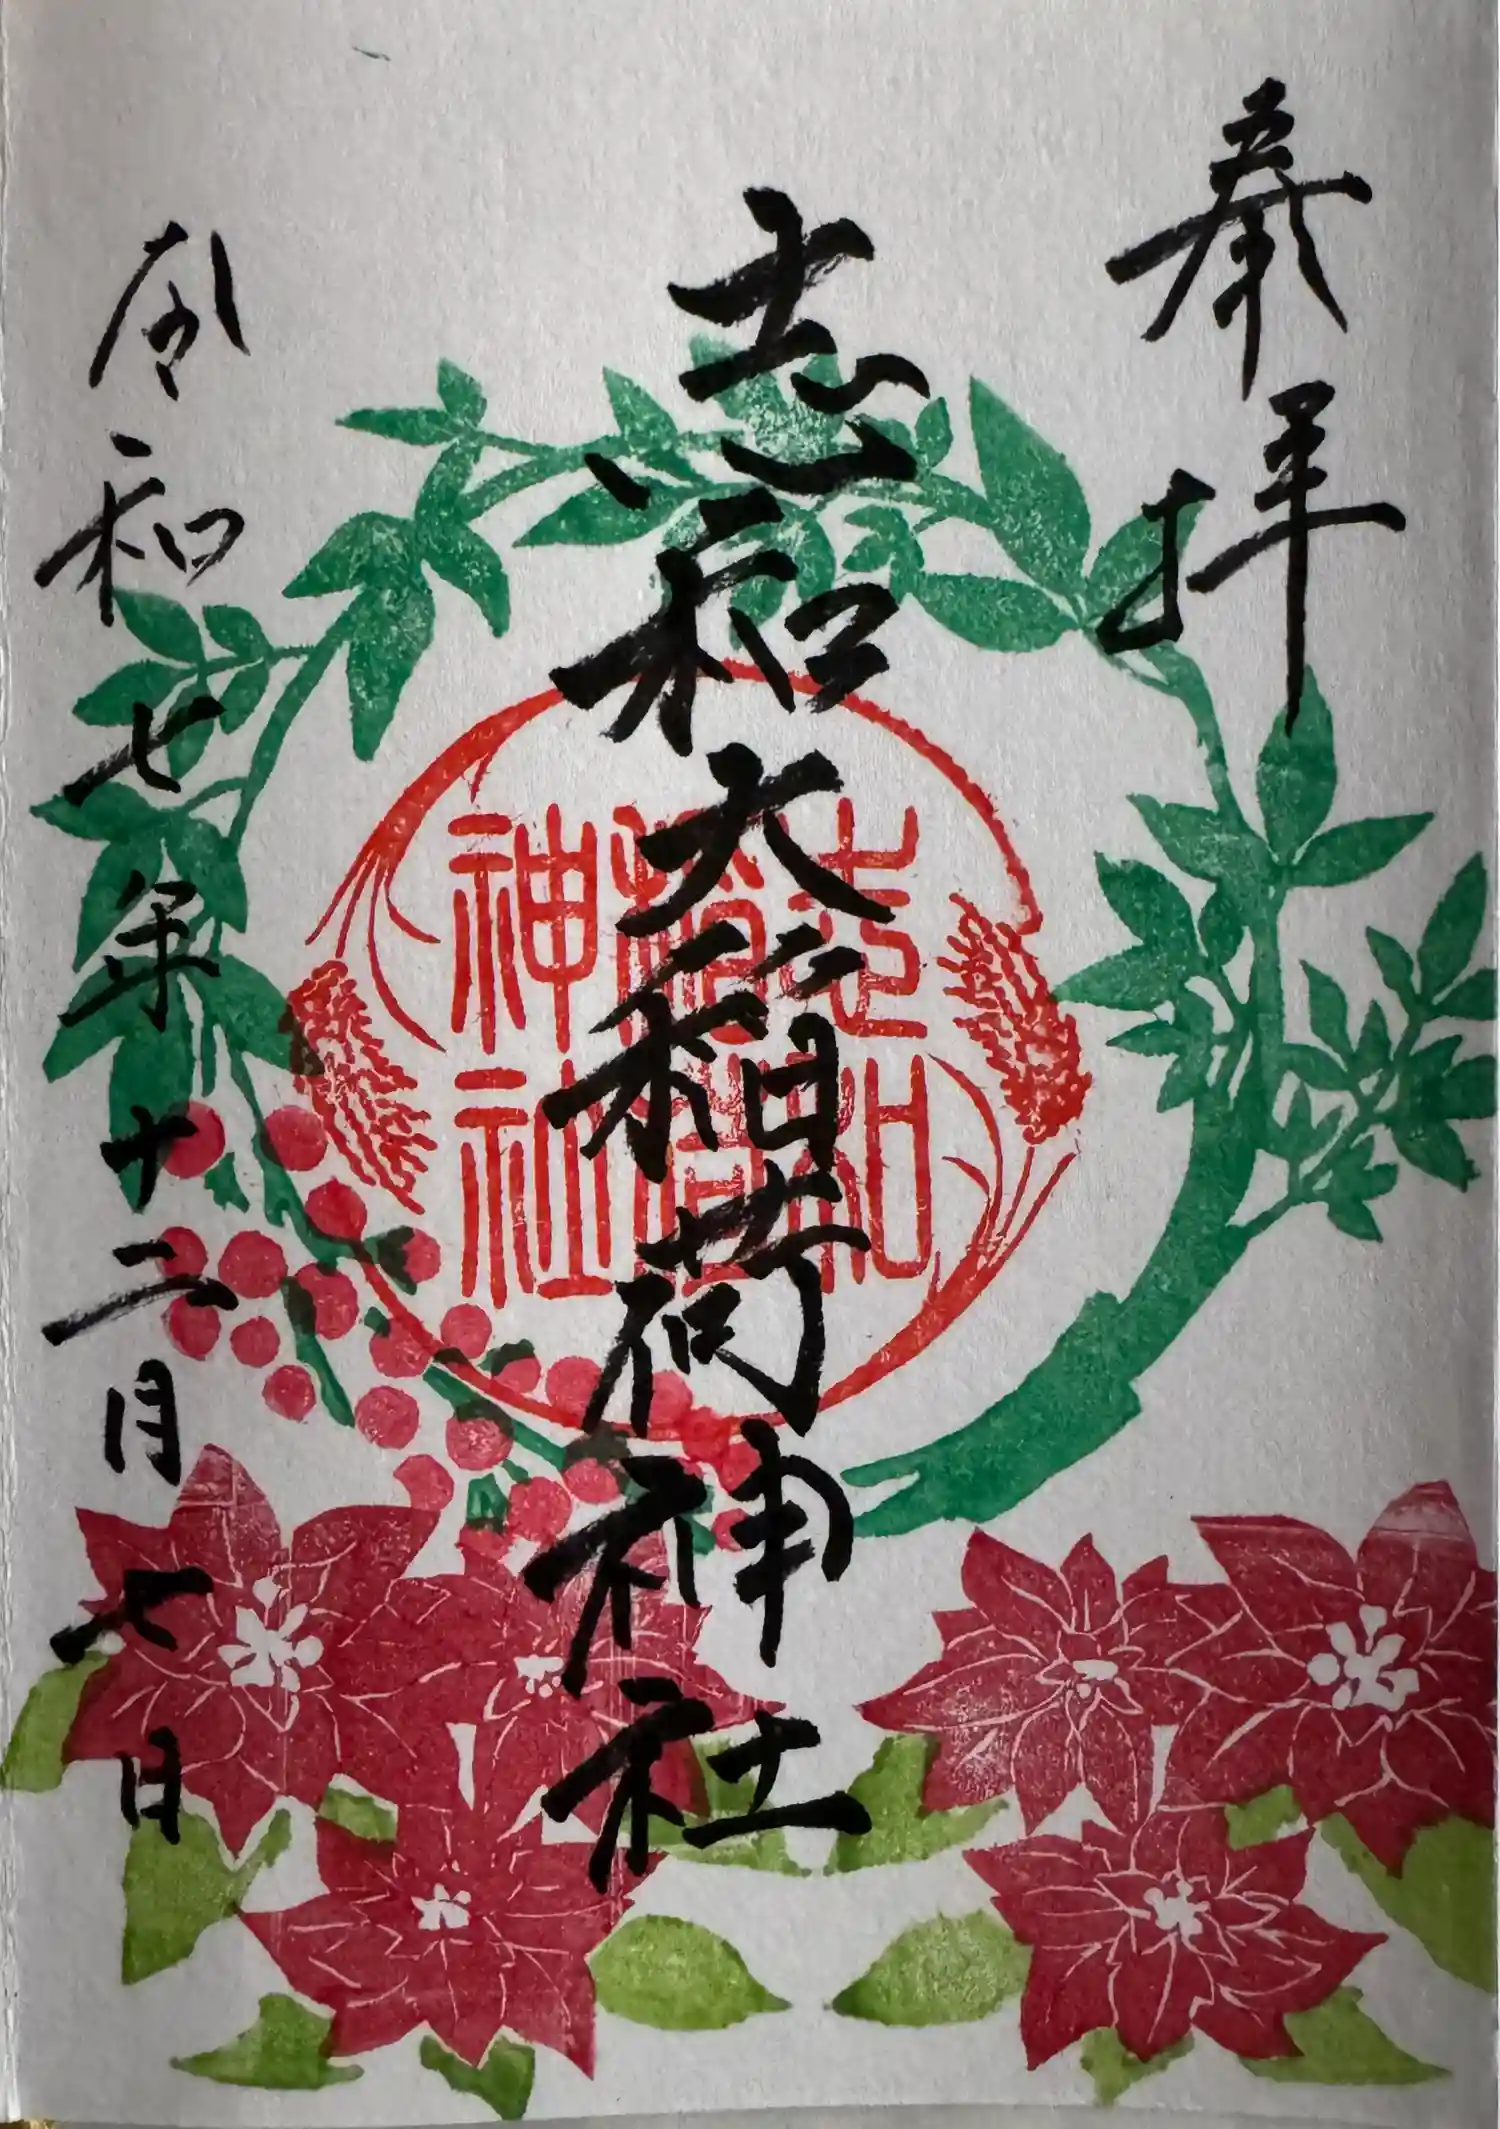 奉拝
志和大稲荷神社
志和
稲荷
神社
令和七年十二月七日